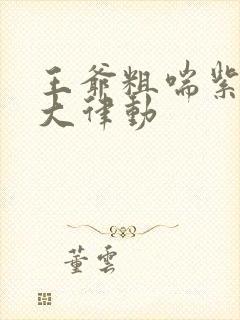 王爷粗喘紫
大律动
董雲